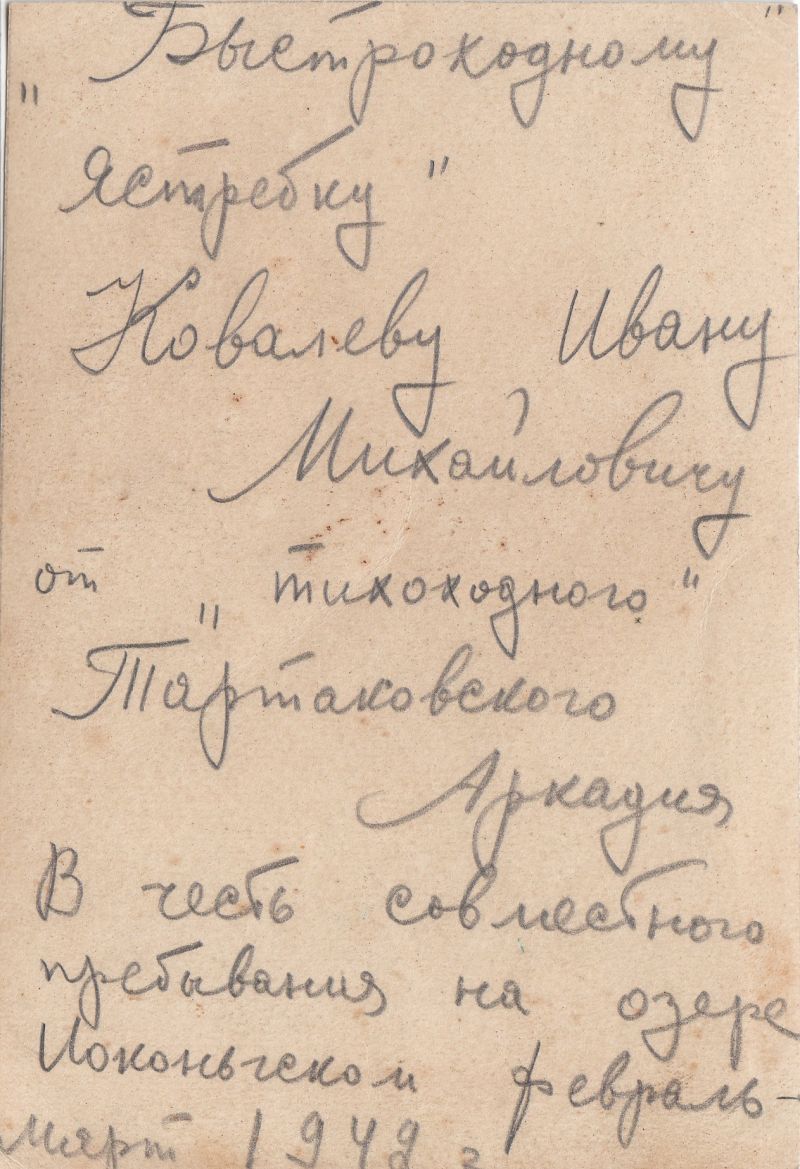 "Быстроходному"
"Ястребку"
Ковалеву Ивану
Михайловичу
от "тихоходного"
Тартаковского
Аркадия
В честь совместного
пребывания на озере
февраль-
март 1949 г